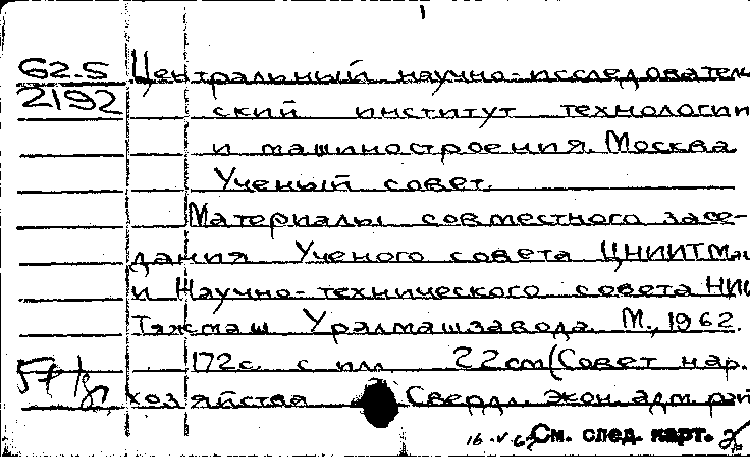 1
62.5 Центральный научно-исследователь
2192 ский институт технологии
и машиностроения. Москва.
Ученый совет.
Материалы совместного засе-
дания Ученого совета ЦНИИТМаш
и Научно-технического совета НИИ
Тяжмаш Уралмашзавода. М., 1962.
172с. с ил. 22 см (Совет нар.
хозяйства Свердл. экон. адм. рай
См. след. карт.